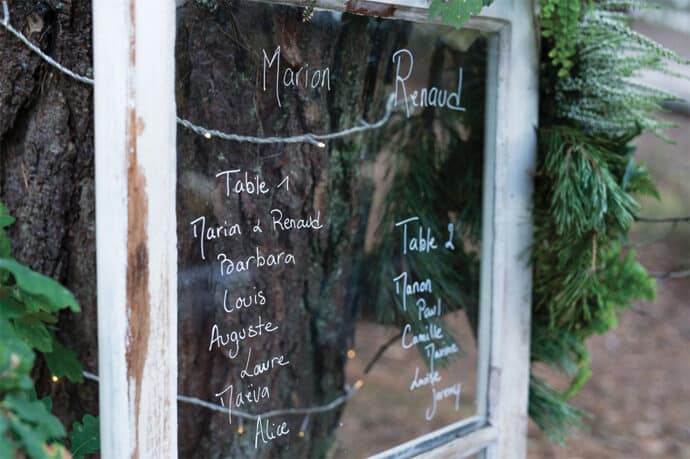 Marion Renaud
Table 1
Marion & Renaud
Barbara
Louis
Auguste
Laure
Maëva
Alice
Table 2
Manon
Paul
Camille
Marine
Louise
Jeremy